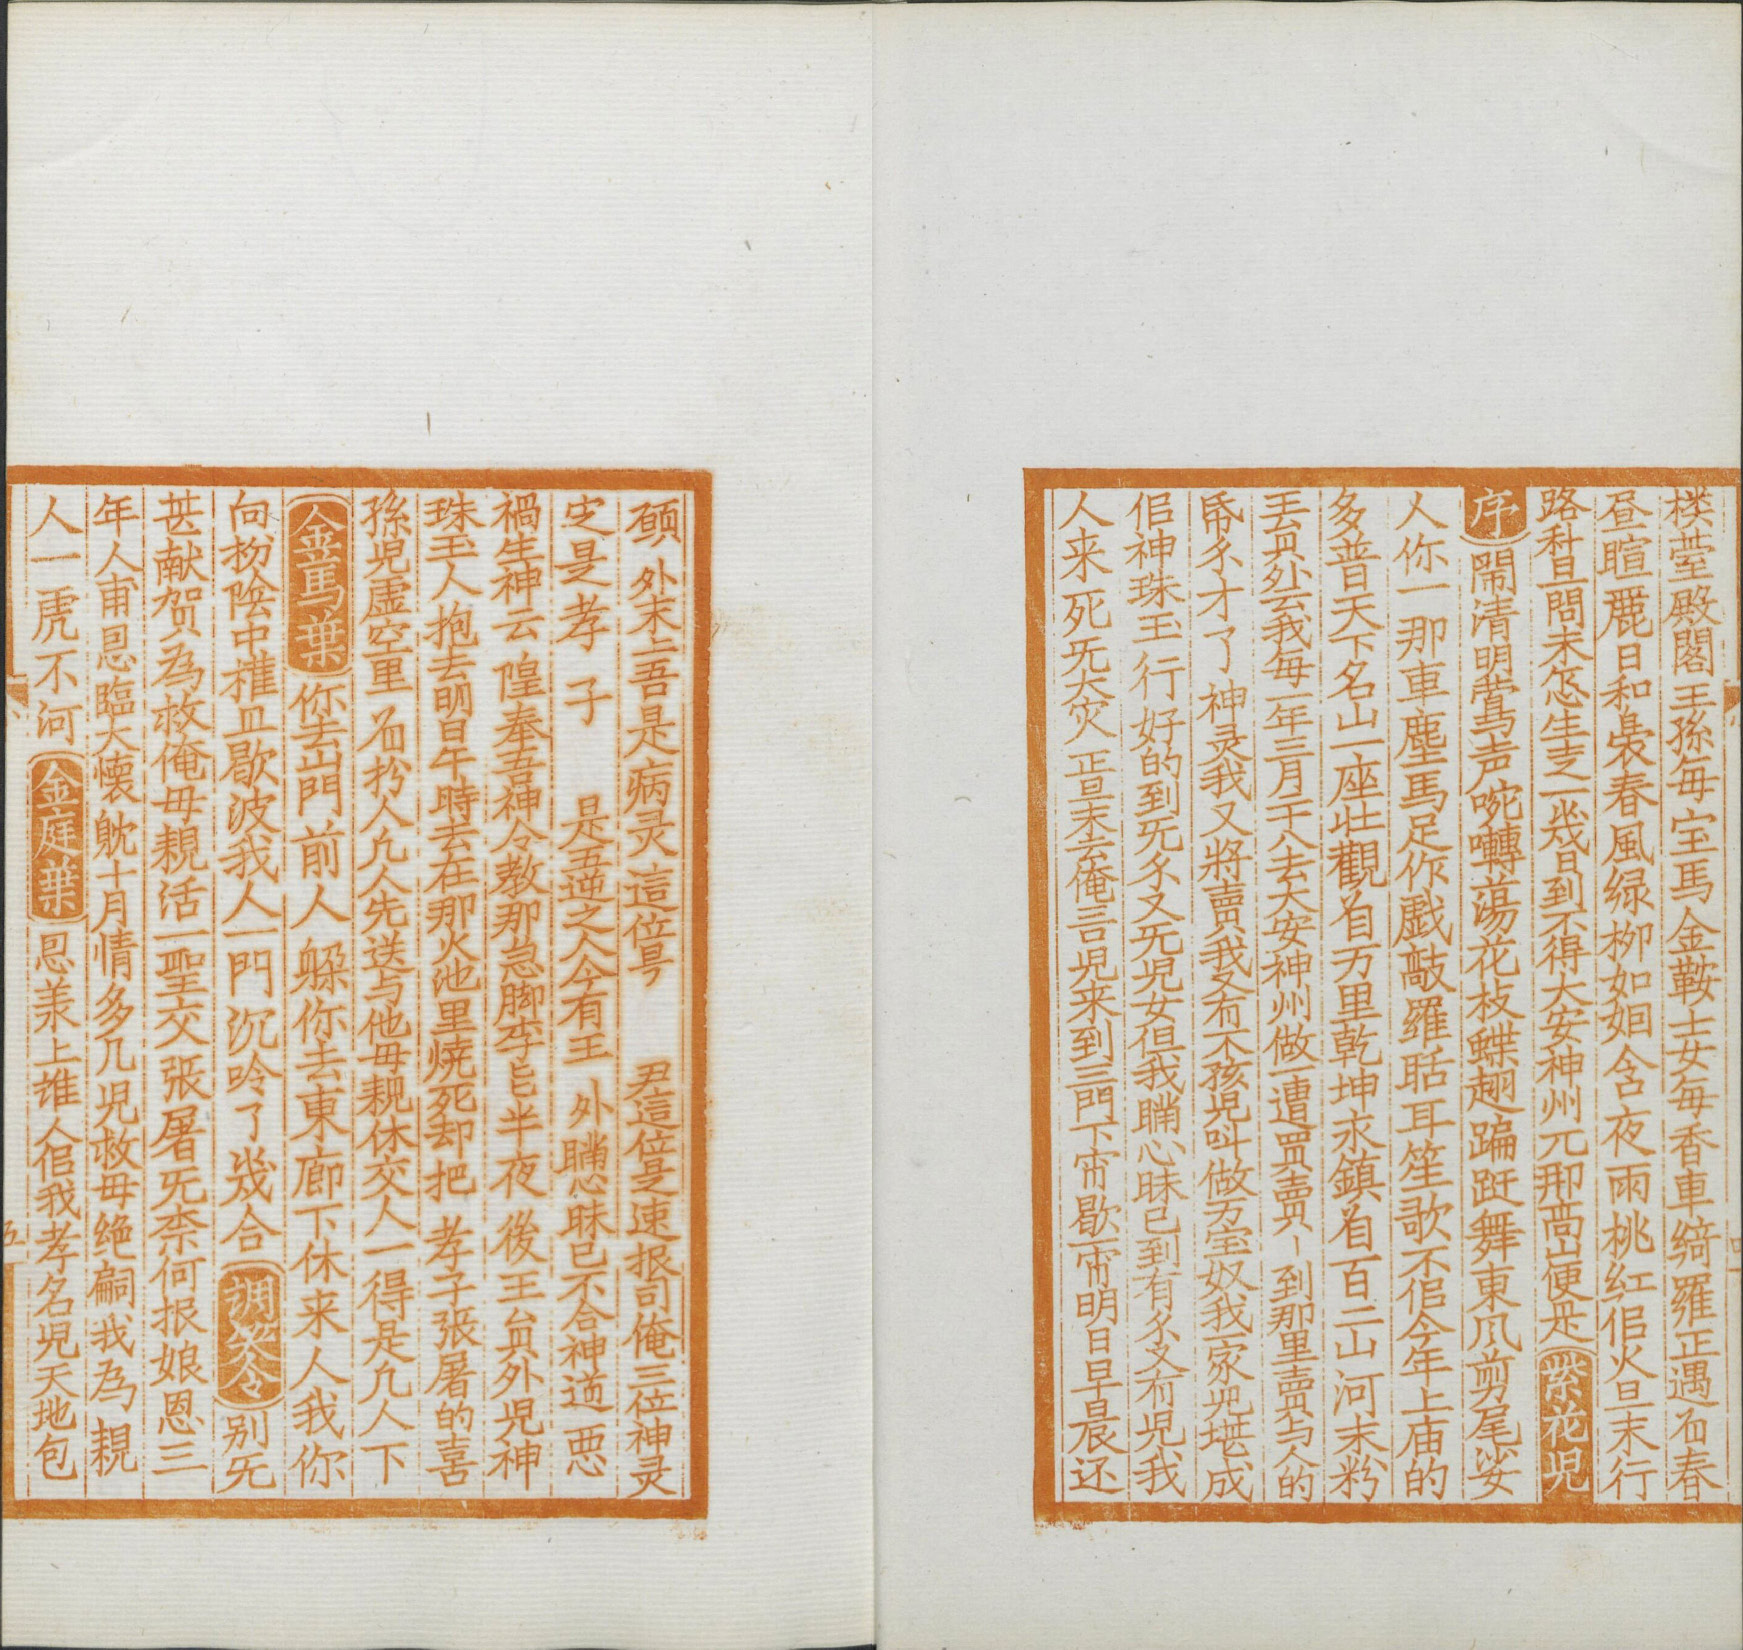 楼䑓殿閣王孫每宝馬金鞍士女每香車綺羅正遇着春
昼暄麗日和裊春風绿柳如烟含夜雨桃红㑋火旦末行
路科旦問末怎生走一㡬日到不得大安神州兀那㒵山便是紫花児
序閙清明鶯声啘囀蕩花枝蝶翅蹁跹舞東风剪尾娑
人你一那車塵馬足作戯敲羅聒耳笙歌不㑋今年上庙的
多普天下名山一座壮觀着万里乾坤永鎮着百二山河末粉
王貟外云我每一年三月二十八去大安神州做一遭買賣到那里賣与人的
帋尒才了神灵我又將賣我又有个孩児叫做万宝奴我一家児堪成
㑋神珠玉行好的到旡尒又旡児女但我瞞心昧己到有尒又有児我
人来死旡大灾正旦末云俺三口児来到三門下宵歇一宵明日早晨还
願外末上吾是病灵這位号君這位是速报司俺三位神灵
㝎是孝子是五逆之人今有王外瞞心昧己不合神道恶
禍生神云惶奉吾神令教那急脚李旨半夜後王貟外児神
珠玉人抱去明日午時去在那火池里烧死却把孝子張屠的喜
孫児虚空里着扵人凢人先送与他母親休交人一得是凢人下
金蕉葉你去山門前人躲你去東廊下休来人我你
向扮陰中権且歇波我人一門沉吟了㡬合調笑令别旡
甚献贺為救俺母親活一聖交張屠旡柰何报娘恩三
年人甫恩臨大懐躭十月情多几児救母绝嗣我為親
人一虎不河金庭葉恩羕上誰人㑋我孝名児天地包